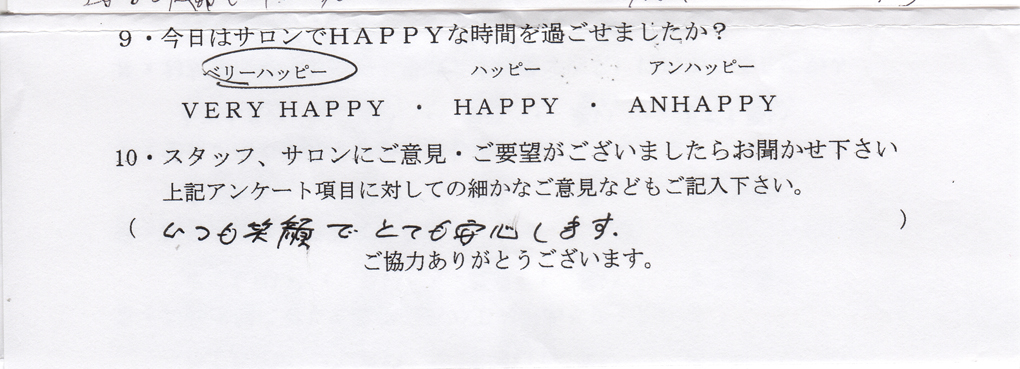 9・今日はサロンでHAPPYな時間を過ごせましたか？
ベリーハッピー ハッピー アンハッピー
VERY HAPPY ・ HAPPY ・ ANHAPPY
10・スタッフ、サロンにご意見・ご要望がございましたらお聞かせ下さい
上記アンケート項目に対しての細かなご意見などもご記入下さい。
（ いつも笑顔で とても安心します. ）
ご協力ありがとうございます。